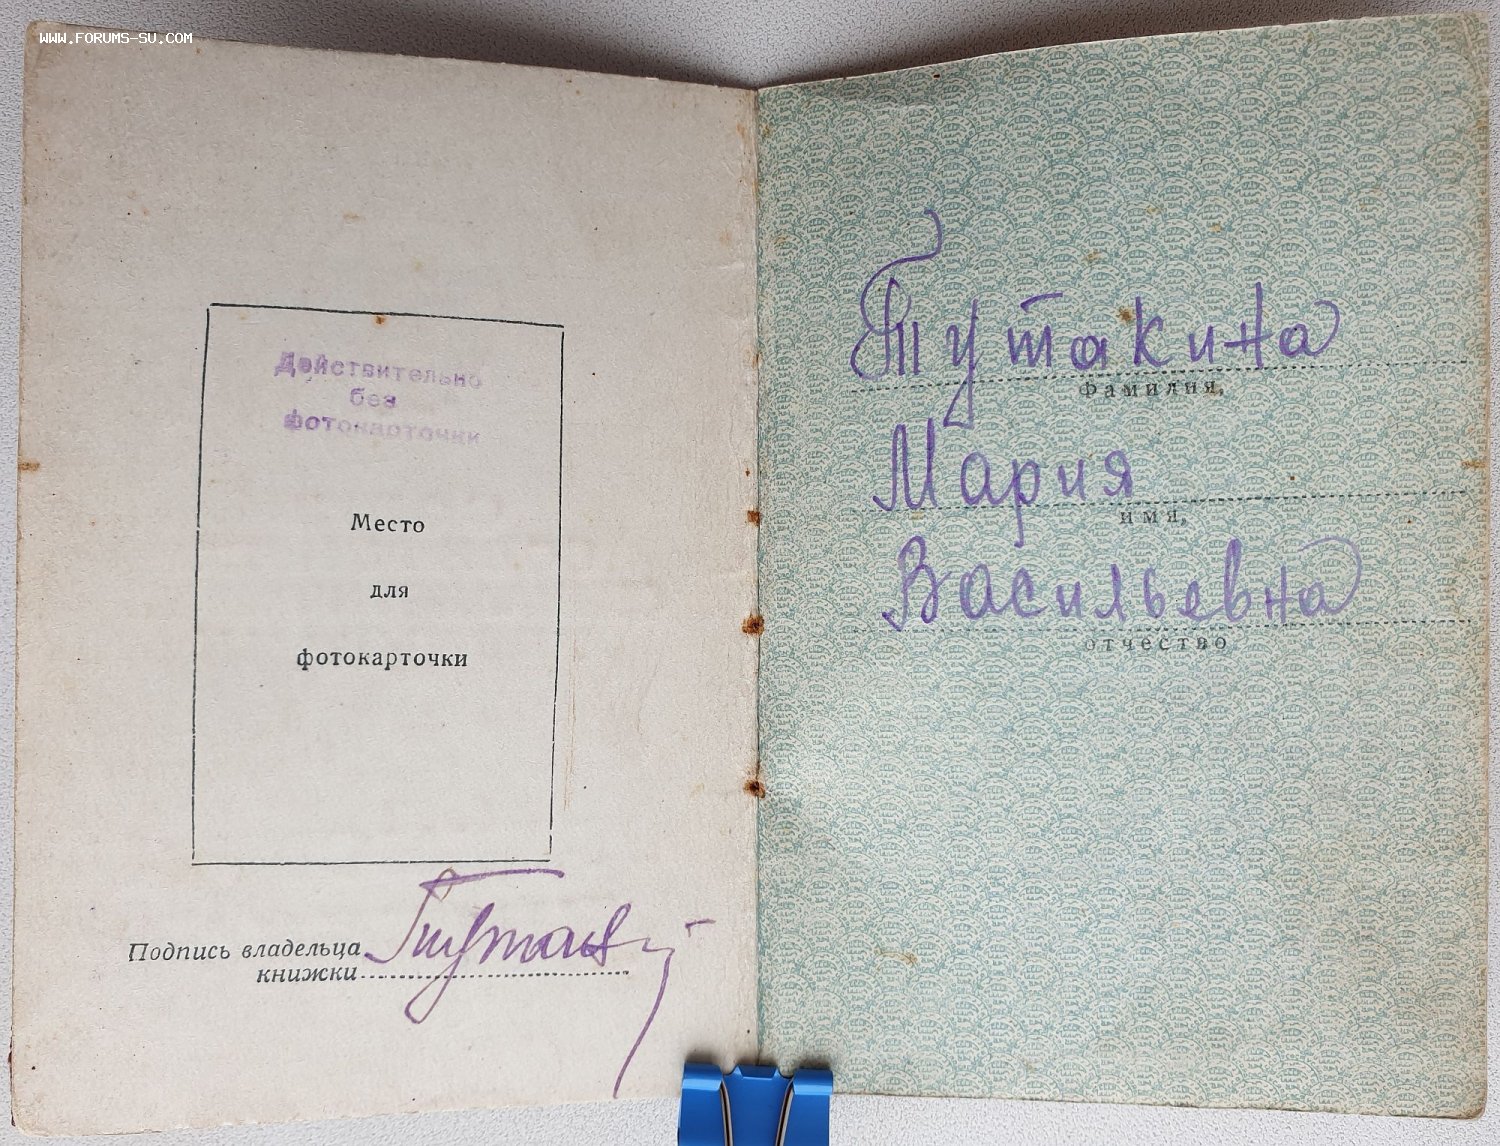 WWW.FORUMS-SU.COM
Действительно
без
фотокарточки
Место
для
фотокарточки
Подпись владельца
книжки
Тутакина
Фамилия,
Мария
имя,
Васильевна
отчество